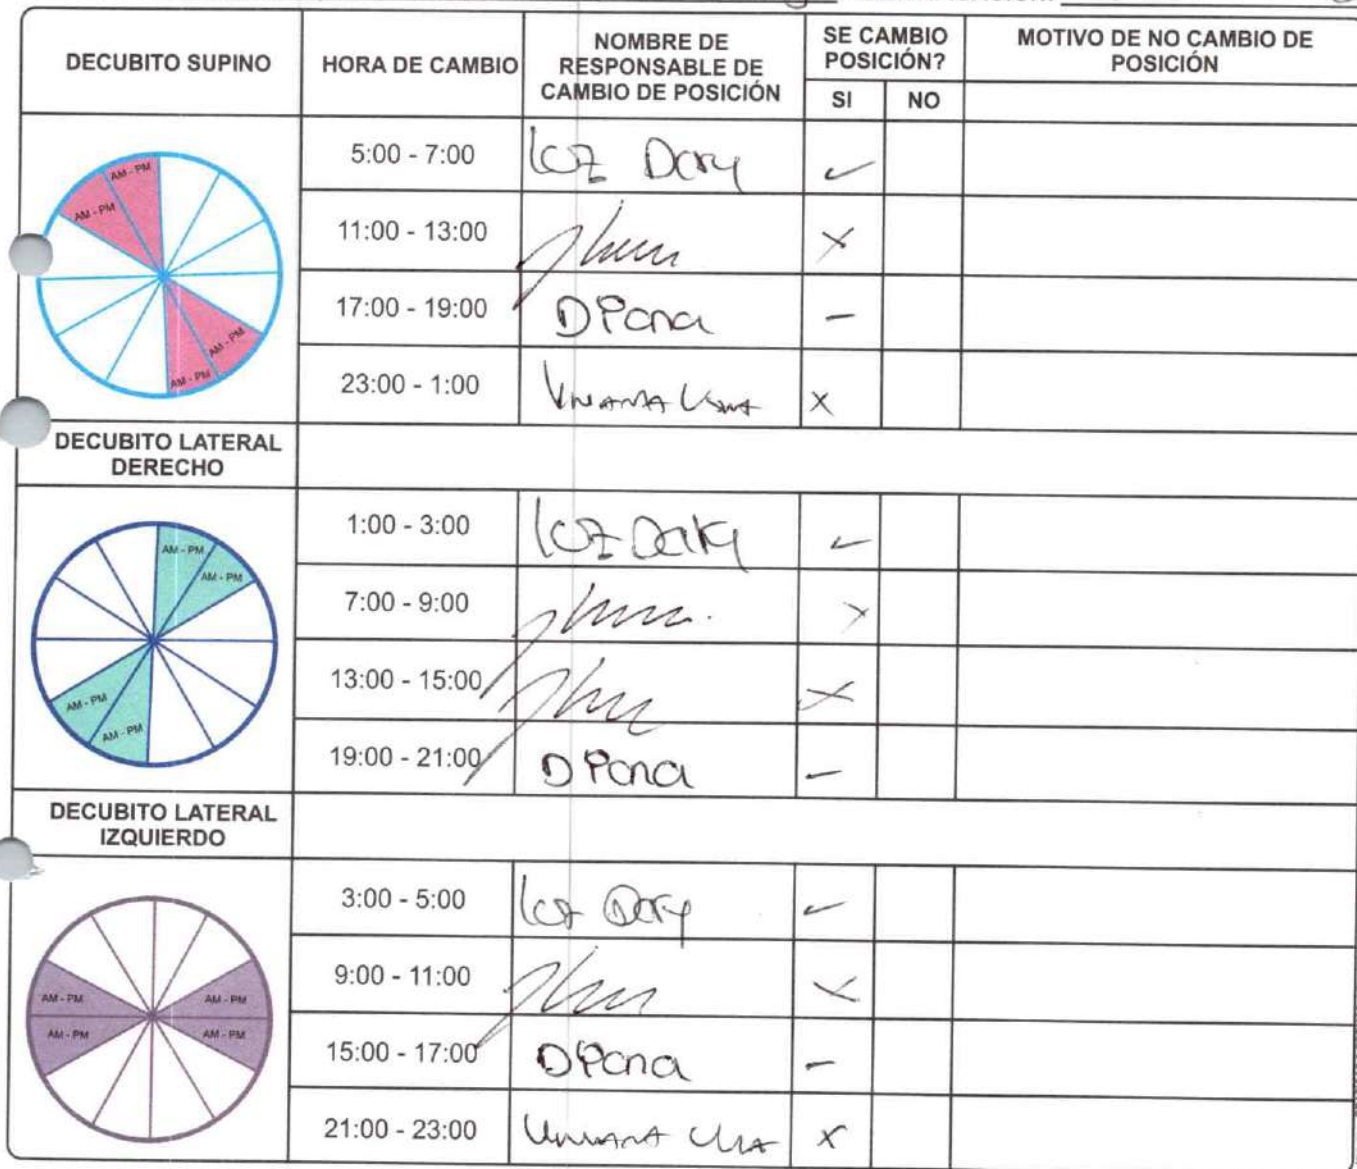 DECUBITO SUPINO
HORA DE CAMBIO
NOMBRE DE
RESPONSABLE DE
CAMBIO DE POSICIÓN
SE CAMBIO
POSICIÓN?
SI NO
MOTIVO DE NO CAMBIO DE
POSICIÓN
AM - PM
AM - PM
AM - PM
AM - PM
5:00 - 7:00 Luz Dary ✓
11:00 - 13:00 X
17:00 - 19:00 –
23:00 - 1:00 Viviana X
DECUBITO LATERAL
DERECHO
AM - PM
AM - PM
AM - PM
AM - PM
1:00 - 3:00 Luz Dary ✓
7:00 - 9:00 X
13:00 - 15:00 X
19:00 - 21:00 –
DECUBITO LATERAL
IZQUIERDO
AM - PM AM - PM
AM - PM AM - PM
3:00 - 5:00 Luz Dary ✓
9:00 - 11:00 X
15:00 - 17:00 –
21:00 - 23:00 Viviana X